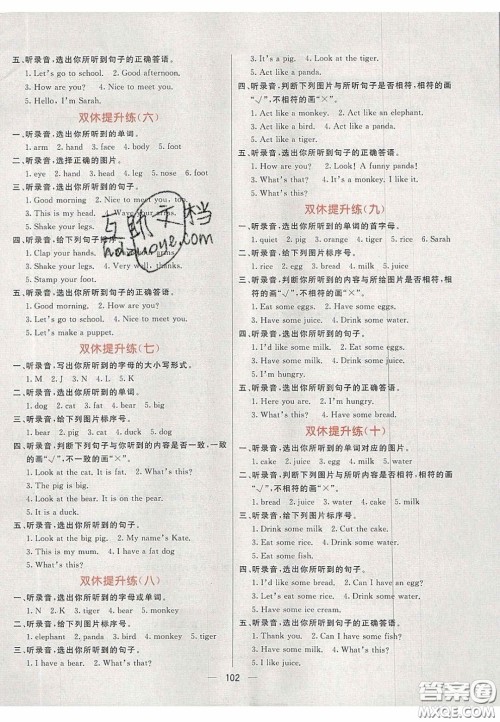 五、听录音,选出你所听到句子的正确答语。
1. Let's go to school.  2. Good afternoon.
3. How are you?  4. Nice to meet you.
5. Hello, I'm Sarah.
双休提升练(六)
一、听录音,选出你所听到的单词。
1. arm  2. hand  3. face  4. body  5. foot
二、听录音,选择正确的图片。
1. eye  2. hand  3. head  4. leg  5. foot
三、听录音,选出你所听到的句子。
1. Good morning  2. Nice to meet you.
3. This is my head.  4. Wave your arms.
5. Shake your legs.
四、听录音,给下列句子
1. Clap your hands.  2.  arms.
3. Shake your legs.  4. Very well, thanks.
5. Stamp your foot.
五、听录音,选出你所听到句子的正确答语。
1. Good morning.  2. How are you?
3. Nice to meet you.  4. Let's go to school.
5. Let's make a puppet.
双休提升练(七)
一、听录音,写出你所听到的字母的大小写形式。
1. M  2. J  3. N  4. K  5. L
二、听录音,选出你所听到的单词。
1. dog  2. cat  3. bear  4. pig  5. duck
三、听录音,给下列图片标序号。
1. bear  2. pig  3. duck  4. cat  5. dog
四、听录音,判断下列句子与你听到的内容是否一致,一致的画“√”,不一致的画“×”。
1. Look at the cat. It is fat.  2. What's this?
3. The pig is big.
4. Look at the bear. It is on the pear.
5. It is a duck.
五、听录音,选出你所听到的句子。
1. Look at the big pig.  2. My name's Kate.
3. This is my mum.  4. I have a fat dog
5. What's this?
双休提升练(八)
一、听录音,选出你所听到的字母或单词。
1. N  2. K  3. tiger  4. bear  5. monkey
二、听录音,给下列图片标序号。
1. elephant  2. panda  3. bird  4. monkey  5. tiger
三、听录音,选出你所听到的句子。
1. I have a bear.  2. What's this?
3. It's a pig.  4. Look at the tiger.
5. Act like a panda.
四、听录音,判断下列图片与所听句子是否相符,相符的画“√”,不相符的画“×”。
1. Act like a monkey.  2. Act like an elephant.
3. Act like a bird.  4. Act like a panda.
5. Act like a tiger.
五、听录音,选出你所听到句子的正确答语。
1. How are you?  2. Look! A funny panda!
3. What's this?  4. I have a dog.
5. Nice to meet you.
双休提升练(九)
一、听录音,选出你所听到的单词的首字母。
1. quiet  2. pig  3. orange  4. tiger  5. rice
二、听录音,给下列图片标序号。
1. bread  2. egg  3. milk  4. water  5. juice
三、听录音,判断你所听到的内容与所给图片是否相符,相符的画“√”,不相符的画“×”。
1. Have some bread.  2. Eat some eggs.
3. Have some juice.  4. Drink some water.
四、听录音,选出你所听到的句子。
1. I'd like some milk.  2. Drink some water.
3. Have some milk.  4. Have some juice.
5. I'm hungry.
五、听录音,选出你所听到句子的正确答语。
1. Here you are.  2. I'm hungry.
3. What's this?  4. Have some bread.
双休提升练(十)
一、听录音,选出你所听到的单词对应的图片。
1. cake  2. juice  3. egg  4. water
二、听录音,判断你所听到的内容与图片是否相符,相符的画“√”,不相符的画“×”。
1. bread  2. juice  3. water  4. cake  5. rice
三、听录音,给下列图片标序号。
1. Drink some milk.  2. Cut the cake.
3. Eat some rice.  4. Eat some bread.
5. Eat some fish.
四、听录音,选出你所听到的句子。
1. I'd like some bread.  2. Can I have an egg?
3. Have some ice cream.  4. Eat some fish.
5. I like juice.
五、听录音,选出你所听到句子的正确答语。
1. Thank you.  2. Can I have some eggs?
3. What's this?  4. Good afternoon.
5. I like juice.
102
互助文档
hdzuoye.com
答案圈
MXQE.COM